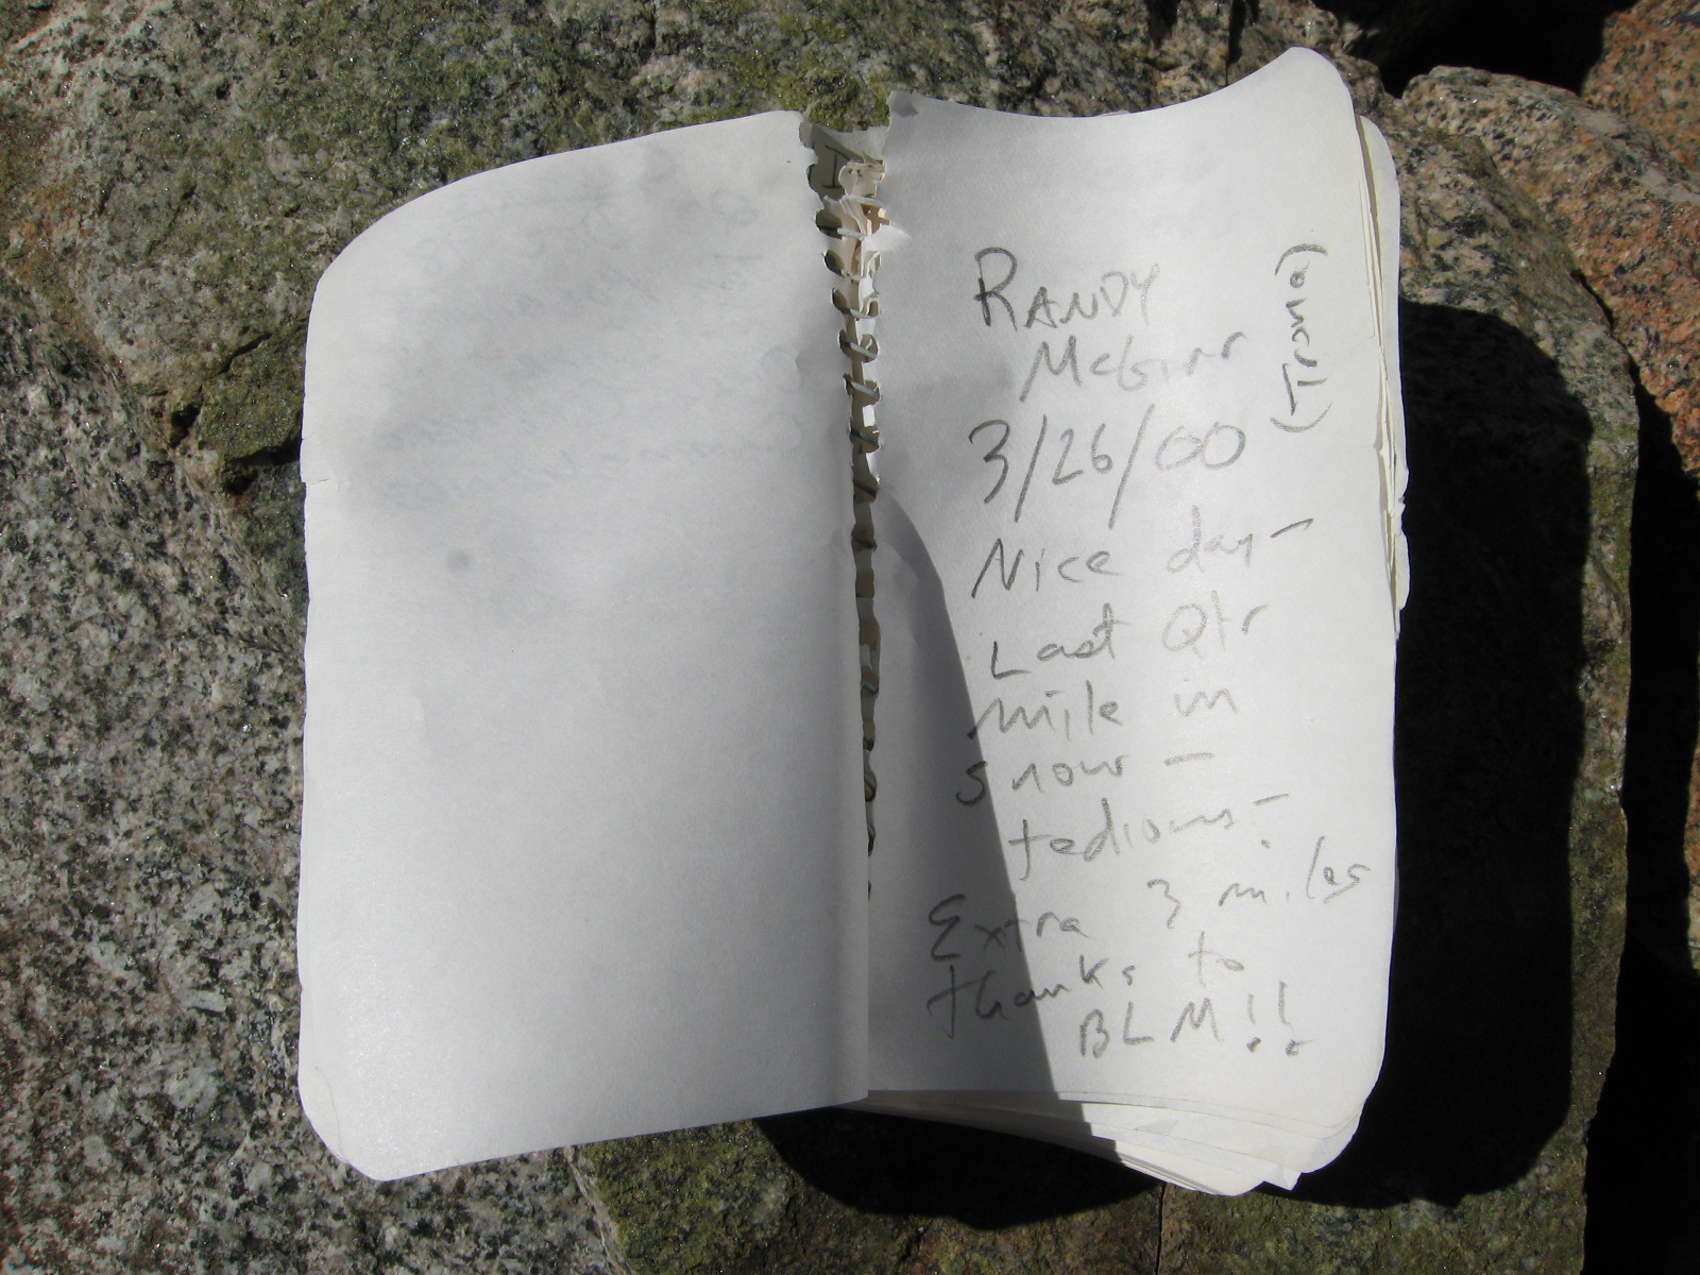 RANDY
McGinn
(Trona)
3/26/00
Nice day -
Last Qtr
mile in
snow -
tedious -.
Extra 3 miles
thanks to
BLM!!